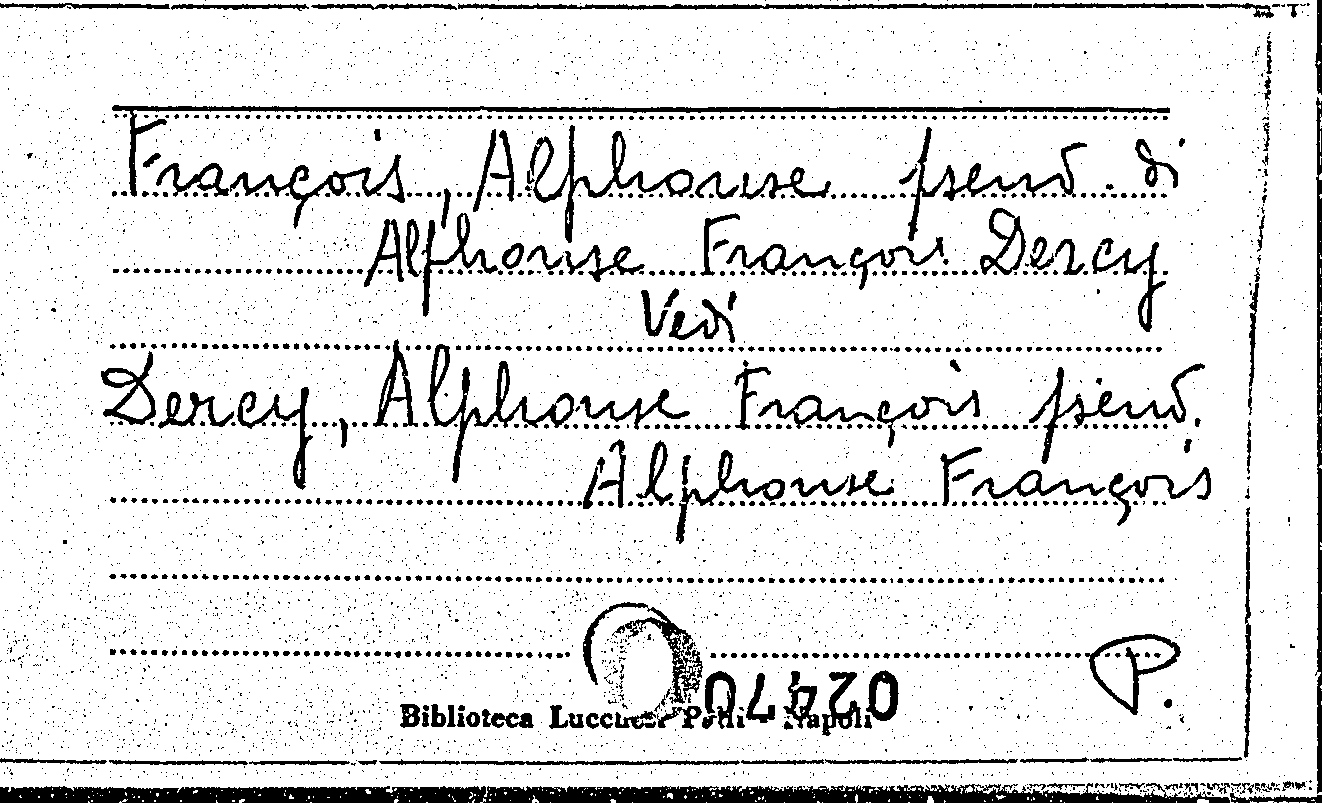 François, Alphonse pseud. di
Alphonse François Dercy
Vedi
Dercy, Alphonse François pseud.
Alphonse François
P.
Biblioteca Lucchesi Palli - Napoli